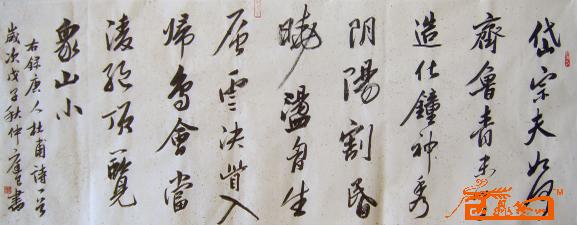 岱宗夫如何
齊魯青未了
造化鐘神秀
阴陽割昏
曉盪胸生
层雲決眥入
歸鳥會當
淩絕頂一覽
衆山小
右録唐人杜甫詩一首
歲次戊子秋仲書